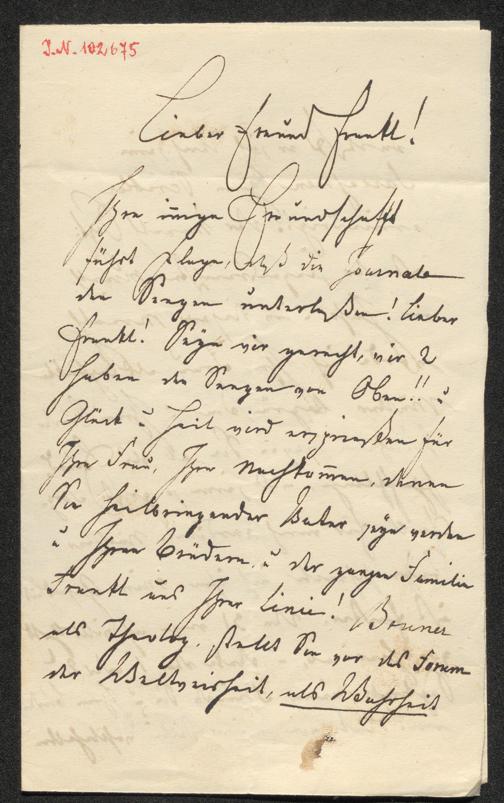 I.N. 102675
Lieber Freund Frankl!
Ihre innige Freundschaft
führt Klage, daß die Journale
den Seegen unterlaßen! lieber
Frankl! Seyn wir gerecht, wir 2
haben den Seegen von Oben!! u
Glück u Heil wird ersprießen für
Ihre Frau, Ihre Nachkommen, denen
Sie heilbringender Vater seyn werden
u Ihren Brüdern, u der ganzen Familie
Frankl aus Ihrer Linie!
als Theolog, stellt Sie vor das Forum
der Weltweisheit, als Wahrheit